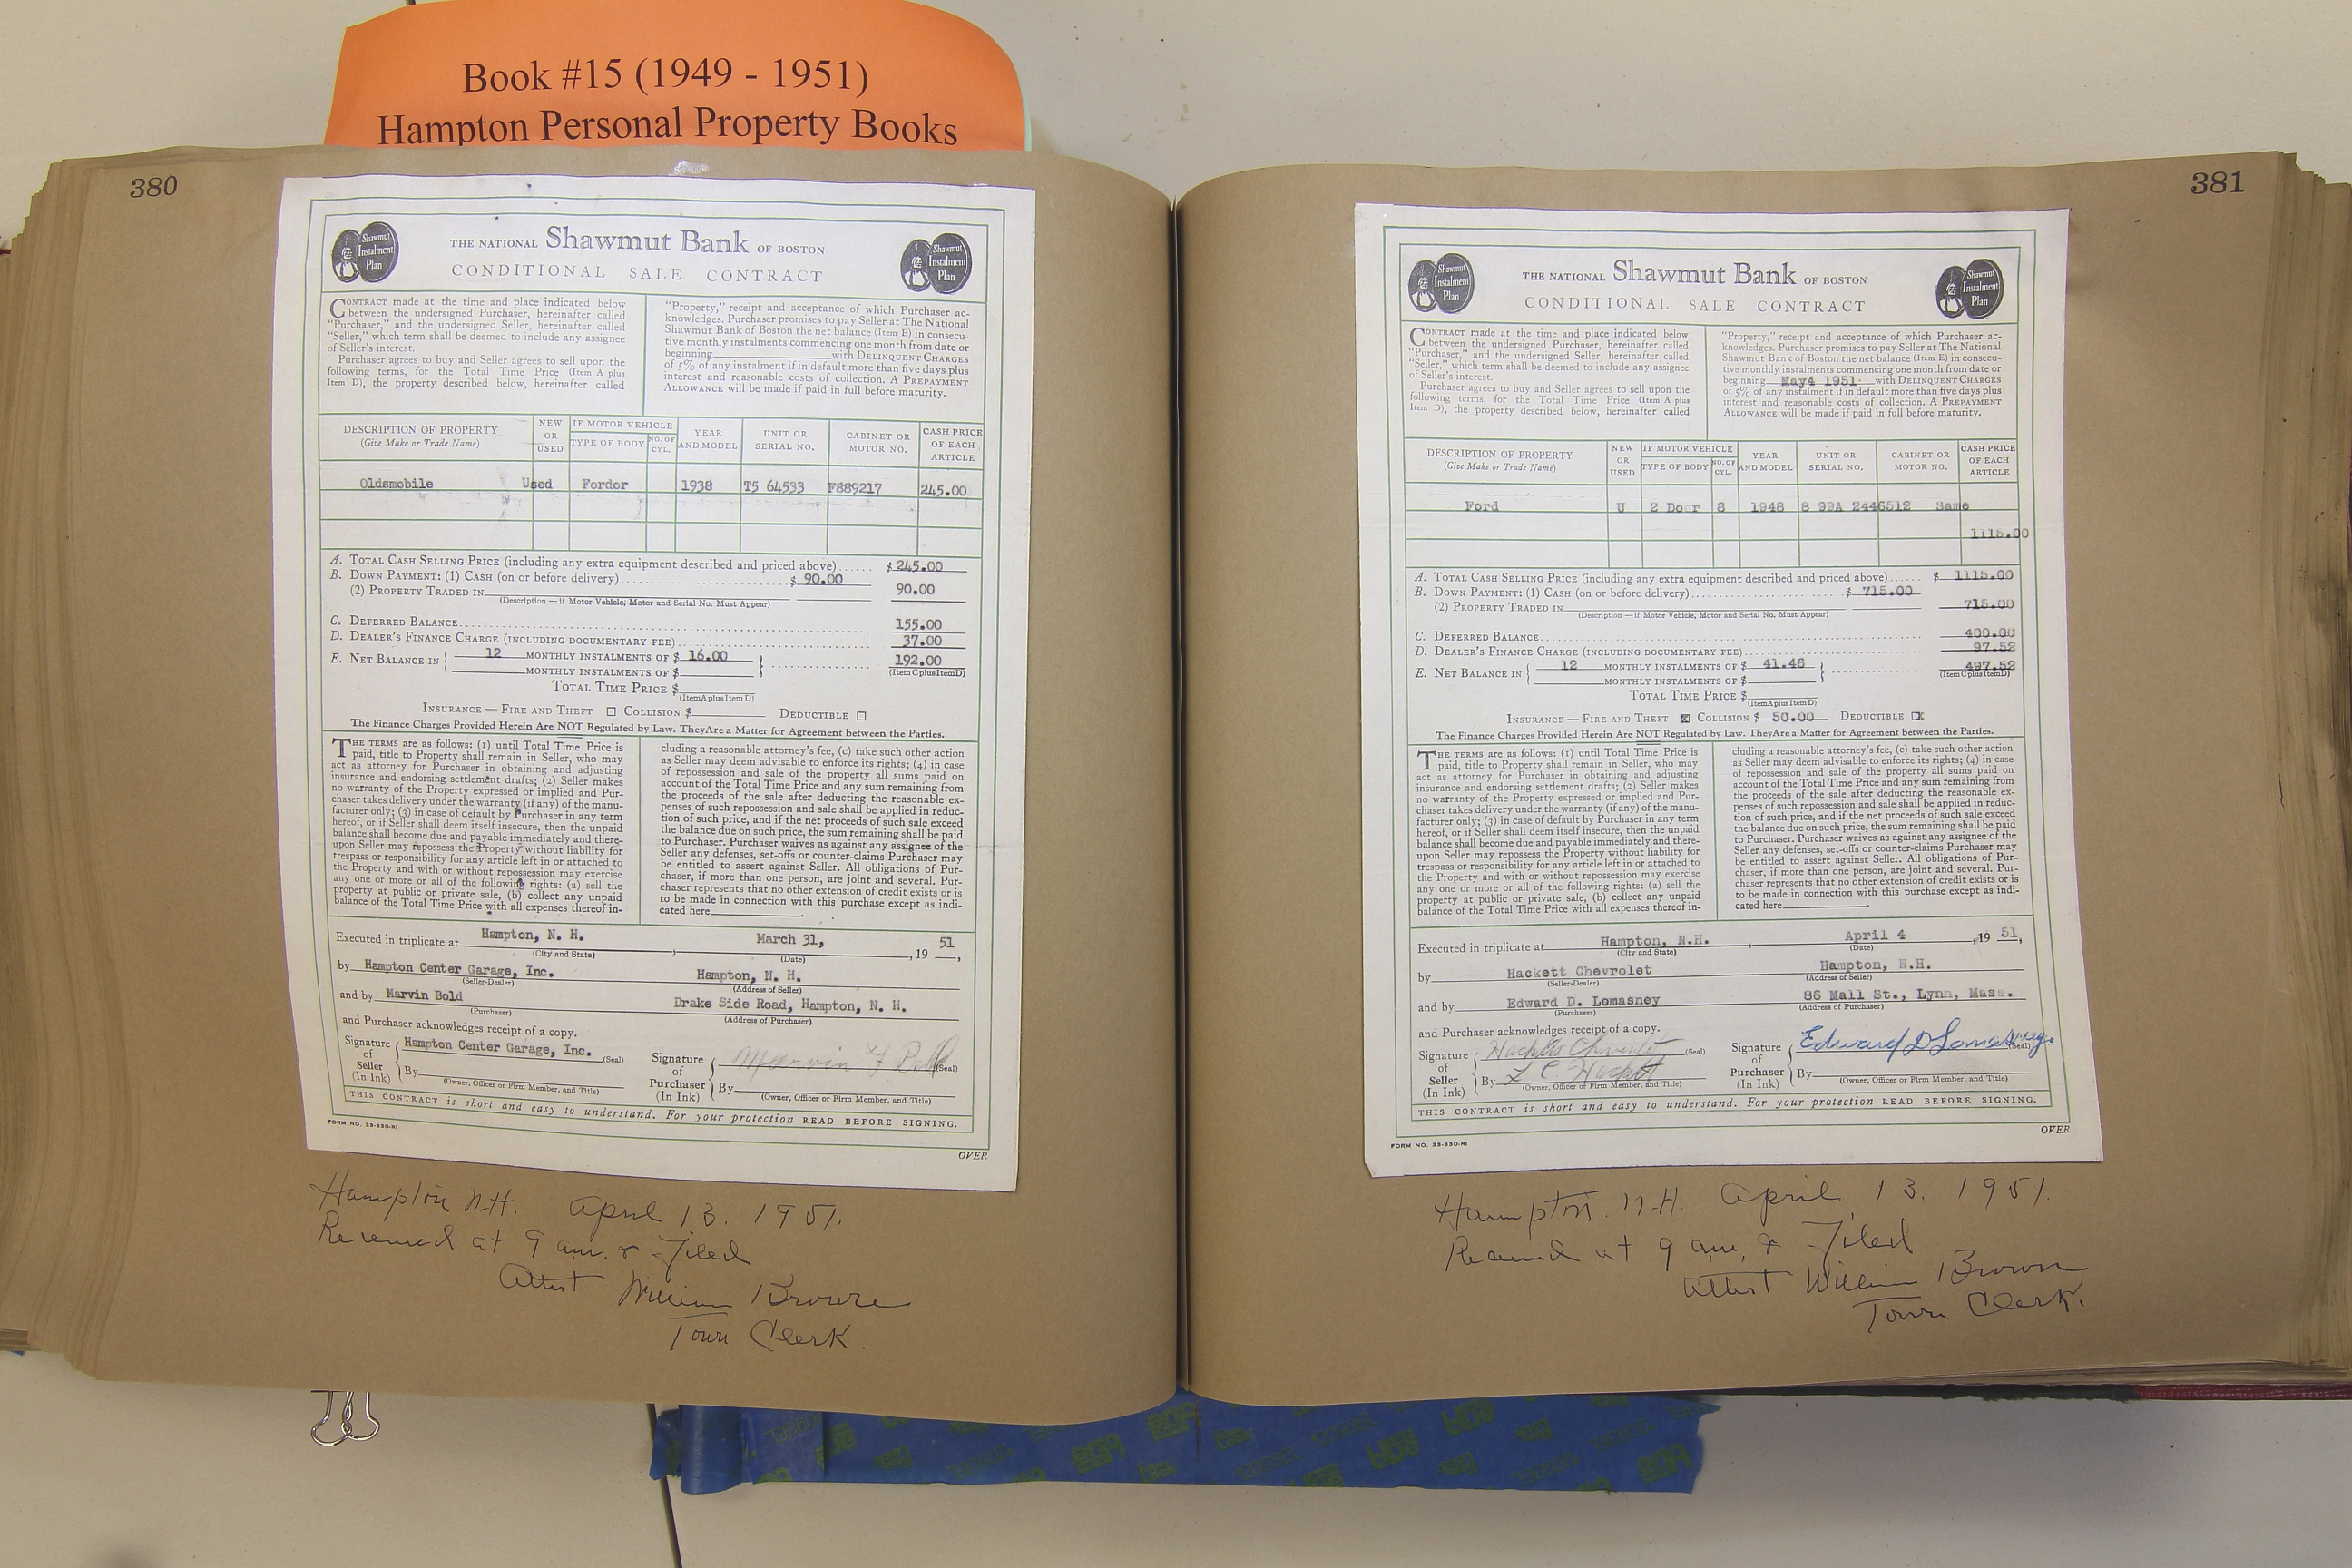 Book #15 (1949 - 1951)
Hampton Personal Property Books
380
Shawmut
Instalment
Plan
THE NATIONAL Shawmut Bank OF BOSTON
CONDITIONAL SALE CONTRACT
Shawmut
Instalment
Plan
CONTRACT made at the time and place indicated below
between the undersigned Purchaser, hereinafter called
"Purchaser," and the undersigned Seller, hereinafter called
"Seller," which term shall be deemed to include any assignee
of Seller's interest.
Purchaser agrees to buy and Seller agrees to sell upon the
following terms, for the Total Time Price (Item A plus
Item D), the property described below, hereinafter called
"Property," receipt and acceptance of which Purchaser ac-
knowledges. Purchaser promises to pay Seller at The National
Shawmut Bank of Boston the net balance (Item E) in consecu-
tive monthly instalments commencing one month from date or
beginning with DELINQUENT CHARGES
of 5% of any instalment if in default more than five days plus
interest and reasonable costs of collection. A PREPAYMENT
ALLOWANCE will be made if paid in full before maturity.
DESCRIPTION OF PROPERTY
(Give Make or Trade Name)
NEW
OR
USED
IF MOTOR VEHICLE
TYPE OF BODY
NO. OF
CYL.
YEAR
AND MODEL
UNIT OR
SERIAL NO.
CABINET OR
MOTOR NO.
CASH PRICE
OF EACH
ARTICLE
Oldsmobile Used Fordor 1938 T5 64533 F889217 245.00
A. TOTAL CASH SELLING PRICE (including any extra equipment described and priced above)...... $ 245.00
B. DOWN PAYMENT: (1) CASH (on or before delivery)........ $ 90.00
(2) PROPERTY TRADED IN 90.00
(Description — if Motor Vehicle, Motor and Serial No. Must Appear)
C. DEFERRED BALANCE........ 155.00
D. DEALER'S FINANCE CHARGE (INCLUDING DOCUMENTARY FEE)........ 37.00
E. NET BALANCE IN { 12 MONTHLY INSTALMENTS OF $ 16.00 } ........ 192.00
MONTHLY INSTALMENTS OF $ (Item C plus Item D)
TOTAL TIME PRICE $
(Item A plus Item D)
INSURANCE — FIRE AND THEFT ☐ COLLISION $ DEDUCTIBLE ☐
The Finance Charges Provided Herein Are NOT Regulated by Law. They Are a Matter for Agreement between the Parties.
THE TERMS are as follows: (1) until Total Time Price is
paid, title to Property shall remain in Seller, who may
act as attorney for Purchaser in obtaining and adjusting
insurance and endorsing settlement drafts; (2) Seller makes
no warranty of the Property expressed or implied and Pur-
chaser takes delivery under the warranty (if any) of the manu-
facturer only; (3) in case of default by Purchaser in any term
hereof, or if Seller shall deem itself insecure, then the unpaid
balance shall become due and payable immediately and there-
upon Seller may repossess the Property without liability for
trespass or responsibility for any article left in or attached to
the Property and with or without repossession may exercise
any one or more or all of the following rights: (a) sell the
property at public or private sale, (b) collect any unpaid
balance of the Total Time Price with all expenses thereof in-
cluding a reasonable attorney's fee, (c) take such other action
as Seller may deem advisable to enforce its rights; (4) in case
of repossession and sale of the property all sums paid on
account of the Total Time Price and any sum remaining from
the proceeds of the sale after deducting the reasonable ex-
penses of such repossession and sale shall be applied in reduc-
tion of such price, and if the net proceeds of such sale exceed
the balance due on such price, the sum remaining shall be paid
to Purchaser. Purchaser waives as against any assignee of the
Seller any defenses, set-offs or counter-claims Purchaser may
be entitled to assert against Seller. All obligations of Pur-
chaser, if more than one person, are joint and several. Pur-
chaser represents that no other extension of credit exists or is
to be made in connection with this purchase except as indi-
cated here
Executed in triplicate at Hampton, N. H. , March 31, , 19 51,
(City and State) (Date)
by Hampton Center Garage, Inc. Hampton, N. H.
(Seller-Dealer) (Address of Seller)
and by Marvin Bold Drake Side Road, Hampton, N. H.
(Purchaser) (Address of Purchaser)
and Purchaser acknowledges receipt of a copy.
Signature
of
Seller
(In Ink)
Hampton Center Garage, Inc. (Seal)
By
(Owner, Officer or Firm Member, and Title)
Signature
of
Purchaser
(In Ink)
Marvin F Bold (Seal)
By
(Owner, Officer or Firm Member, and Title)
THIS CONTRACT is short and easy to understand. For your protection READ BEFORE SIGNING.
FORM NO. 33-330-RI
OVER
Hampton N.H. April 13. 1951.
Received at 9 am. & Filed
Attest William Brown
Town Clerk.
381
Shawmut
Instalment
Plan
THE NATIONAL Shawmut Bank OF BOSTON
CONDITIONAL SALE CONTRACT
Shawmut
Instalment
Plan
CONTRACT made at the time and place indicated below
between the undersigned Purchaser, hereinafter called
"Purchaser," and the undersigned Seller, hereinafter called
"Seller," which term shall be deemed to include any assignee
of Seller's interest.
Purchaser agrees to buy and Seller agrees to sell upon the
following terms, for the Total Time Price (Item A plus
Item D), the property described below, hereinafter called
"Property," receipt and acceptance of which Purchaser ac-
knowledges. Purchaser promises to pay Seller at The National
Shawmut Bank of Boston the net balance (Item E) in consecu-
tive monthly instalments commencing one month from date or
beginning May4 1951 with DELINQUENT CHARGES
of 5% of any instalment if in default more than five days plus
interest and reasonable costs of collection. A PREPAYMENT
ALLOWANCE will be made if paid in full before maturity.
DESCRIPTION OF PROPERTY
(Give Make or Trade Name)
NEW
OR
USED
IF MOTOR VEHICLE
TYPE OF BODY
NO. OF
CYL.
YEAR
AND MODEL
UNIT OR
SERIAL NO.
CABINET OR
MOTOR NO.
CASH PRICE
OF EACH
ARTICLE
Ford U 2 Door 8 1948 8 99A 2446512 Same
1115.00
A. TOTAL CASH SELLING PRICE (including any extra equipment described and priced above)...... $ 1115.00
B. DOWN PAYMENT: (1) CASH (on or before delivery)........ $ 715.00
(2) PROPERTY TRADED IN 715.00
(Description — if Motor Vehicle, Motor and Serial No. Must Appear)
C. DEFERRED BALANCE........ 400.00
D. DEALER'S FINANCE CHARGE (INCLUDING DOCUMENTARY FEE)........ 97.52
E. NET BALANCE IN { 12 MONTHLY INSTALMENTS OF $ 41.46 } ........ 497.52
MONTHLY INSTALMENTS OF $ (Item C plus Item D)
TOTAL TIME PRICE $
(Item A plus Item D)
INSURANCE — FIRE AND THEFT ☒ COLLISION $ 50.00 DEDUCTIBLE ☒
The Finance Charges Provided Herein Are NOT Regulated by Law. They Are a Matter for Agreement between the Parties.
THE TERMS are as follows: (1) until Total Time Price is
paid, title to Property shall remain in Seller, who may
act as attorney for Purchaser in obtaining and adjusting
insurance and endorsing settlement drafts; (2) Seller makes
no warranty of the Property expressed or implied and Pur-
chaser takes delivery under the warranty (if any) of the manu-
facturer only; (3) in case of default by Purchaser in any term
hereof, or if Seller shall deem itself insecure, then the unpaid
balance shall become due and payable immediately and there-
upon Seller may repossess the Property without liability for
trespass or responsibility for any article left in or attached to
the Property and with or without repossession may exercise
any one or more or all of the following rights: (a) sell the
property at public or private sale, (b) collect any unpaid
balance of the Total Time Price with all expenses thereof in-
cluding a reasonable attorney's fee, (c) take such other action
as Seller may deem advisable to enforce its rights; (4) in case
of repossession and sale of the property all sums paid on
account of the Total Time Price and any sum remaining from
the proceeds of the sale after deducting the reasonable ex-
penses of such repossession and sale shall be applied in reduc-
tion of such price, and if the net proceeds of such sale exceed
the balance due on such price, the sum remaining shall be paid
to Purchaser. Purchaser waives as against any assignee of the
Seller any defenses, set-offs or counter-claims Purchaser may
be entitled to assert against Seller. All obligations of Pur-
chaser, if more than one person, are joint and several. Pur-
chaser represents that no other extension of credit exists or is
to be made in connection with this purchase except as indi-
cated here
Executed in triplicate at Hampton, N.H. , April 4 , 19 51,
(City and State) (Date)
by Hackett Chevrolet Hampton, N.H.
(Seller-Dealer) (Address of Seller)
and by Edward D. Lomasney 86 Mall St., Lynn, Mass.
(Purchaser) (Address of Purchaser)
and Purchaser acknowledges receipt of a copy.
Signature
of
Seller
(In Ink)
Hackett Chevrolet (Seal)
By L C Hackett
(Owner, Officer or Firm Member, and Title)
Signature
of
Purchaser
(In Ink)
Edward D Lomasney. (Seal)
By
(Owner, Officer or Firm Member, and Title)
THIS CONTRACT is short and easy to understand. For your protection READ BEFORE SIGNING.
FORM NO. 33-330-RI
OVER
Hampton. N.H. April 13. 1951.
Received at 9 am, & Filed
Attest William Brown
Town Clerk.